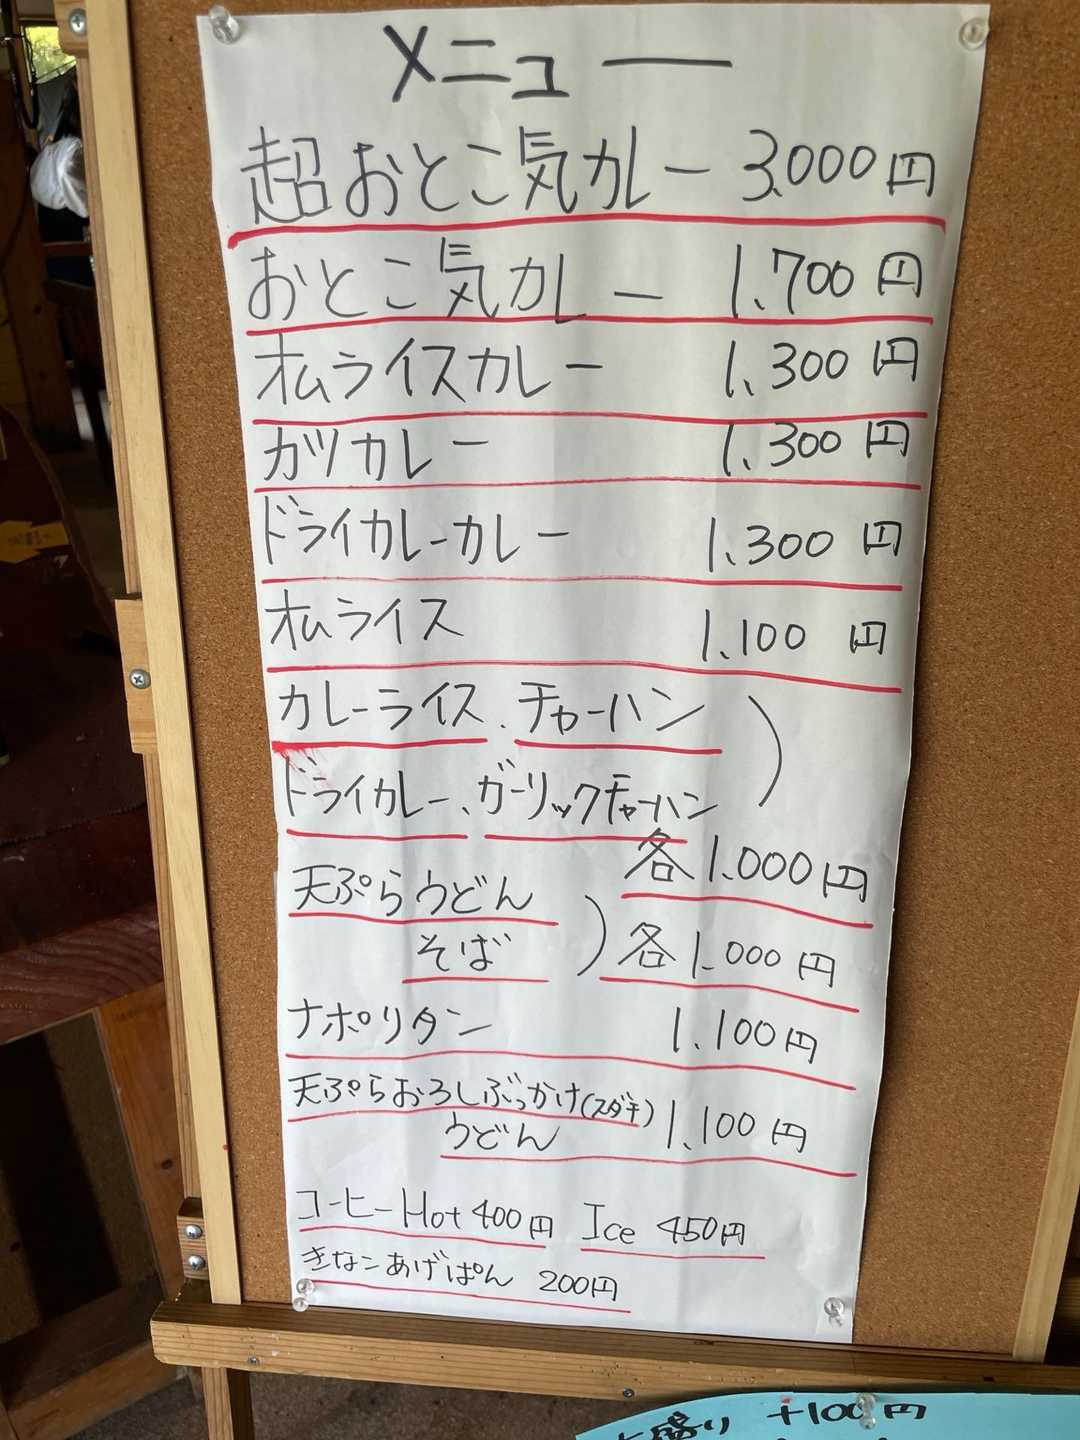 メニュー
超おとこ気カレー 3.000円
おとこ気カレー 1.700円
オムライスカレー 1.300円
カツカレー 1.300円
ドライカレーカレー 1.300円
オムライス 1.100円
カレーライス、チャーハン
ドライカレー、ガーリックチャーハン
各1.000円
天ぷらうどん
そば 各1.000円
ナポリタン 1.100円
天ぷらおろしぶっかけ(スダチ)
うどん 1.100円
コーヒーHot 400円 Ice 450円
きなこあげぱん 200円
大盛り +100円